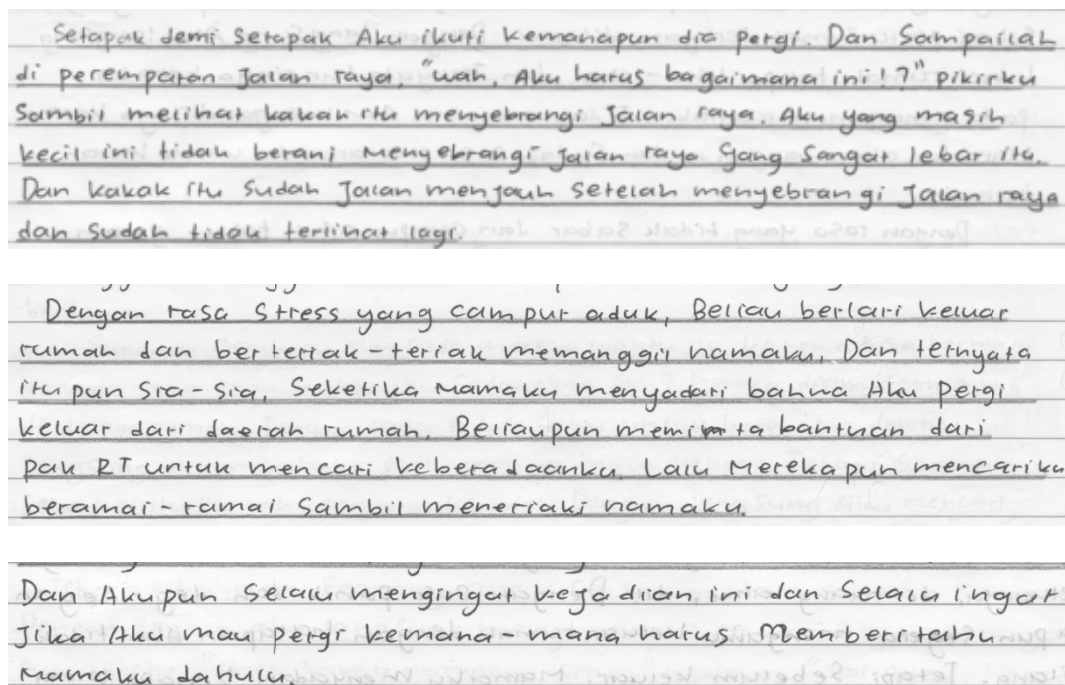 Setapak demi Setapak Aku ikuti kemanapun dia pergi. Dan Sampailah
di perempatan Jalan raya, "wah, Aku harus bagaimana ini!?" pikirku
Sambil melihat kakak itu menyebrangi Jalan raya. Aku yang masih
kecil ini tidak berani Menyebrangi jalan raya yang Sangat lebar itu.
Dan kakak itu Sudah Jalan menjauh Setelah menyebrangi Jalan raya
dan Sudah tidak terlihat lagi.
Dengan rasa Stress yang campur aduk, Beliau berlari keluar
rumah dan berteriak-teriak memanggil namaku. Dan ternyata
itupun Sia-Sia, Seketika Mamaku menyadari bahwa Aku Pergi
keluar dari daerah rumah. Beliaupun meminta bantuan dari
pak RT untuk mencari keberadaanku. Lalu Merekapun mencariku
beramai-ramai Sambil meneriaki namaku.
Dan Akupun Selalu mengingat kejadian ini dan Selalu ingat
Jika Aku mau Pergi kemana-mana harus Memberitahu
Mamaku dahulu.